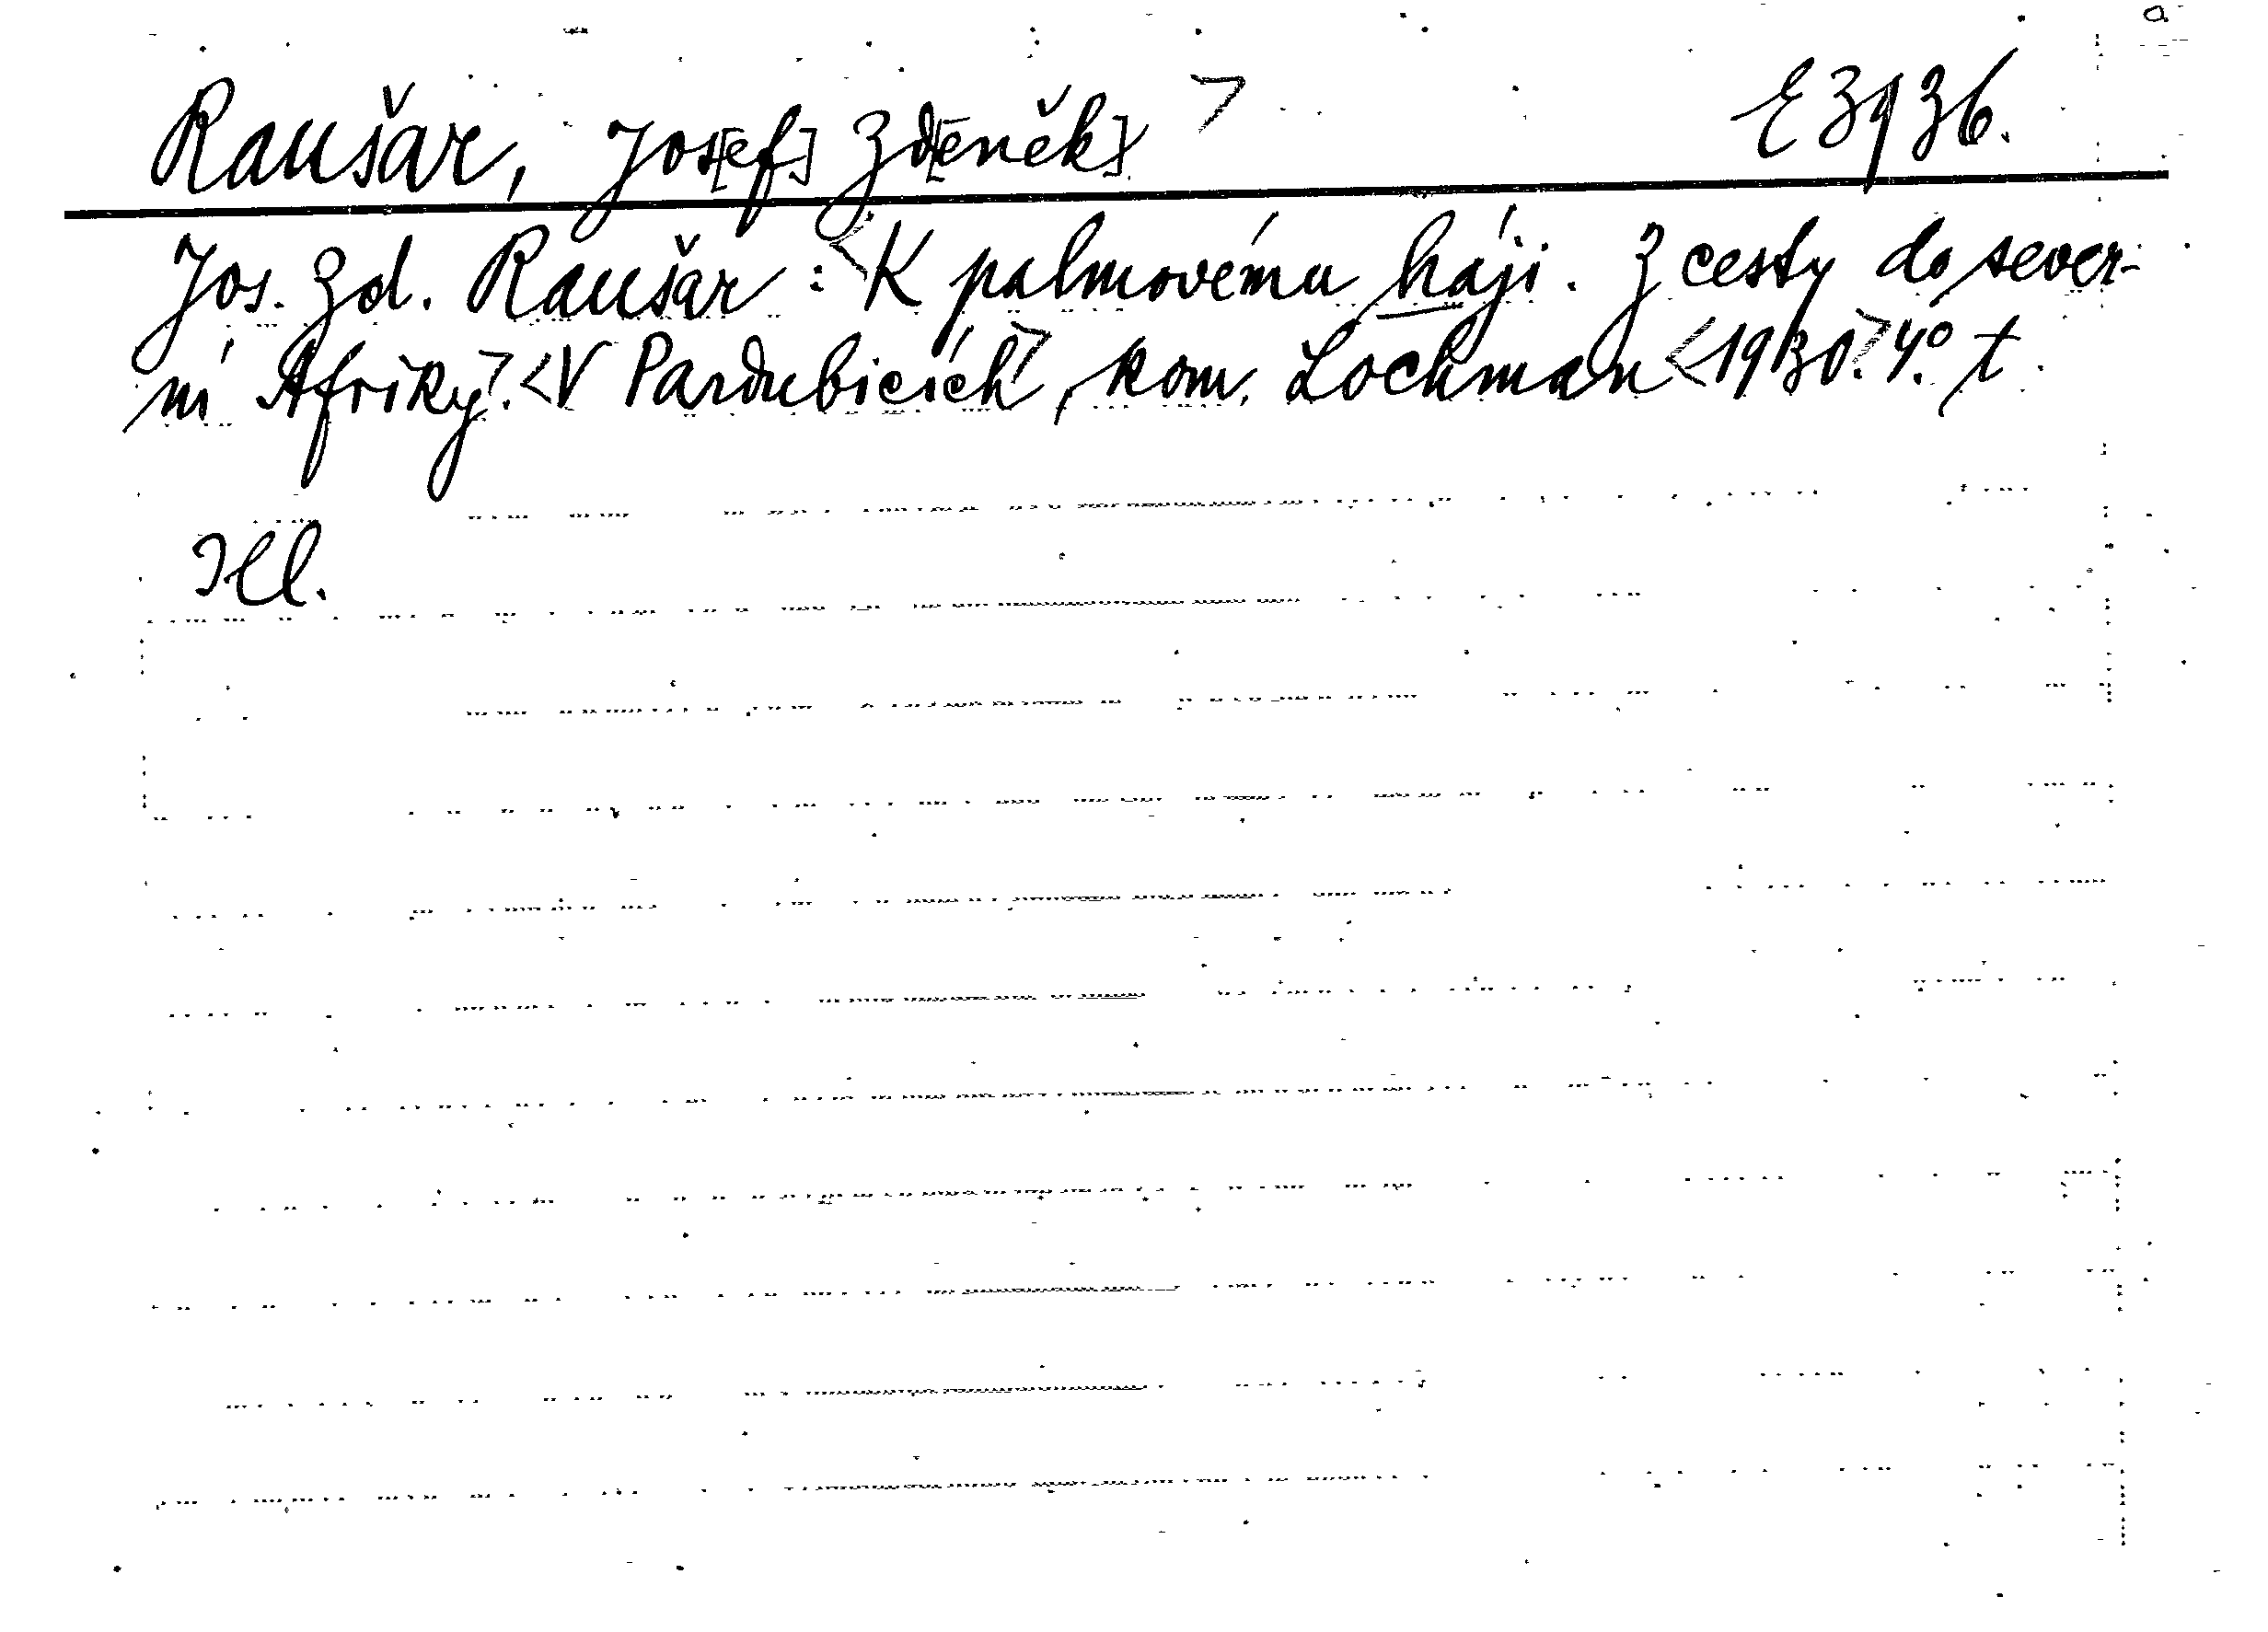 Raušar, Jos[ef] Zd[eněk] > E 3936.
Jos. Zd. Raušar : <K palmovému háji. Z cesty do sever-
ní Afriky>. <V Pardubicích>, kom. Lochman <1930>. 4.° t.
Ill.